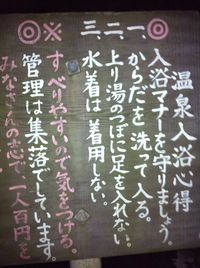 温泉入浴心得
◎入浴マナーを守りましょう。
一、からだを洗って入る。
二、上り湯のつぼに足を入れない。
三、水着は着用しない。
※すべりやすいので気をつける。
◎管理は集落でしています。
みなさんの志で、一人百円を